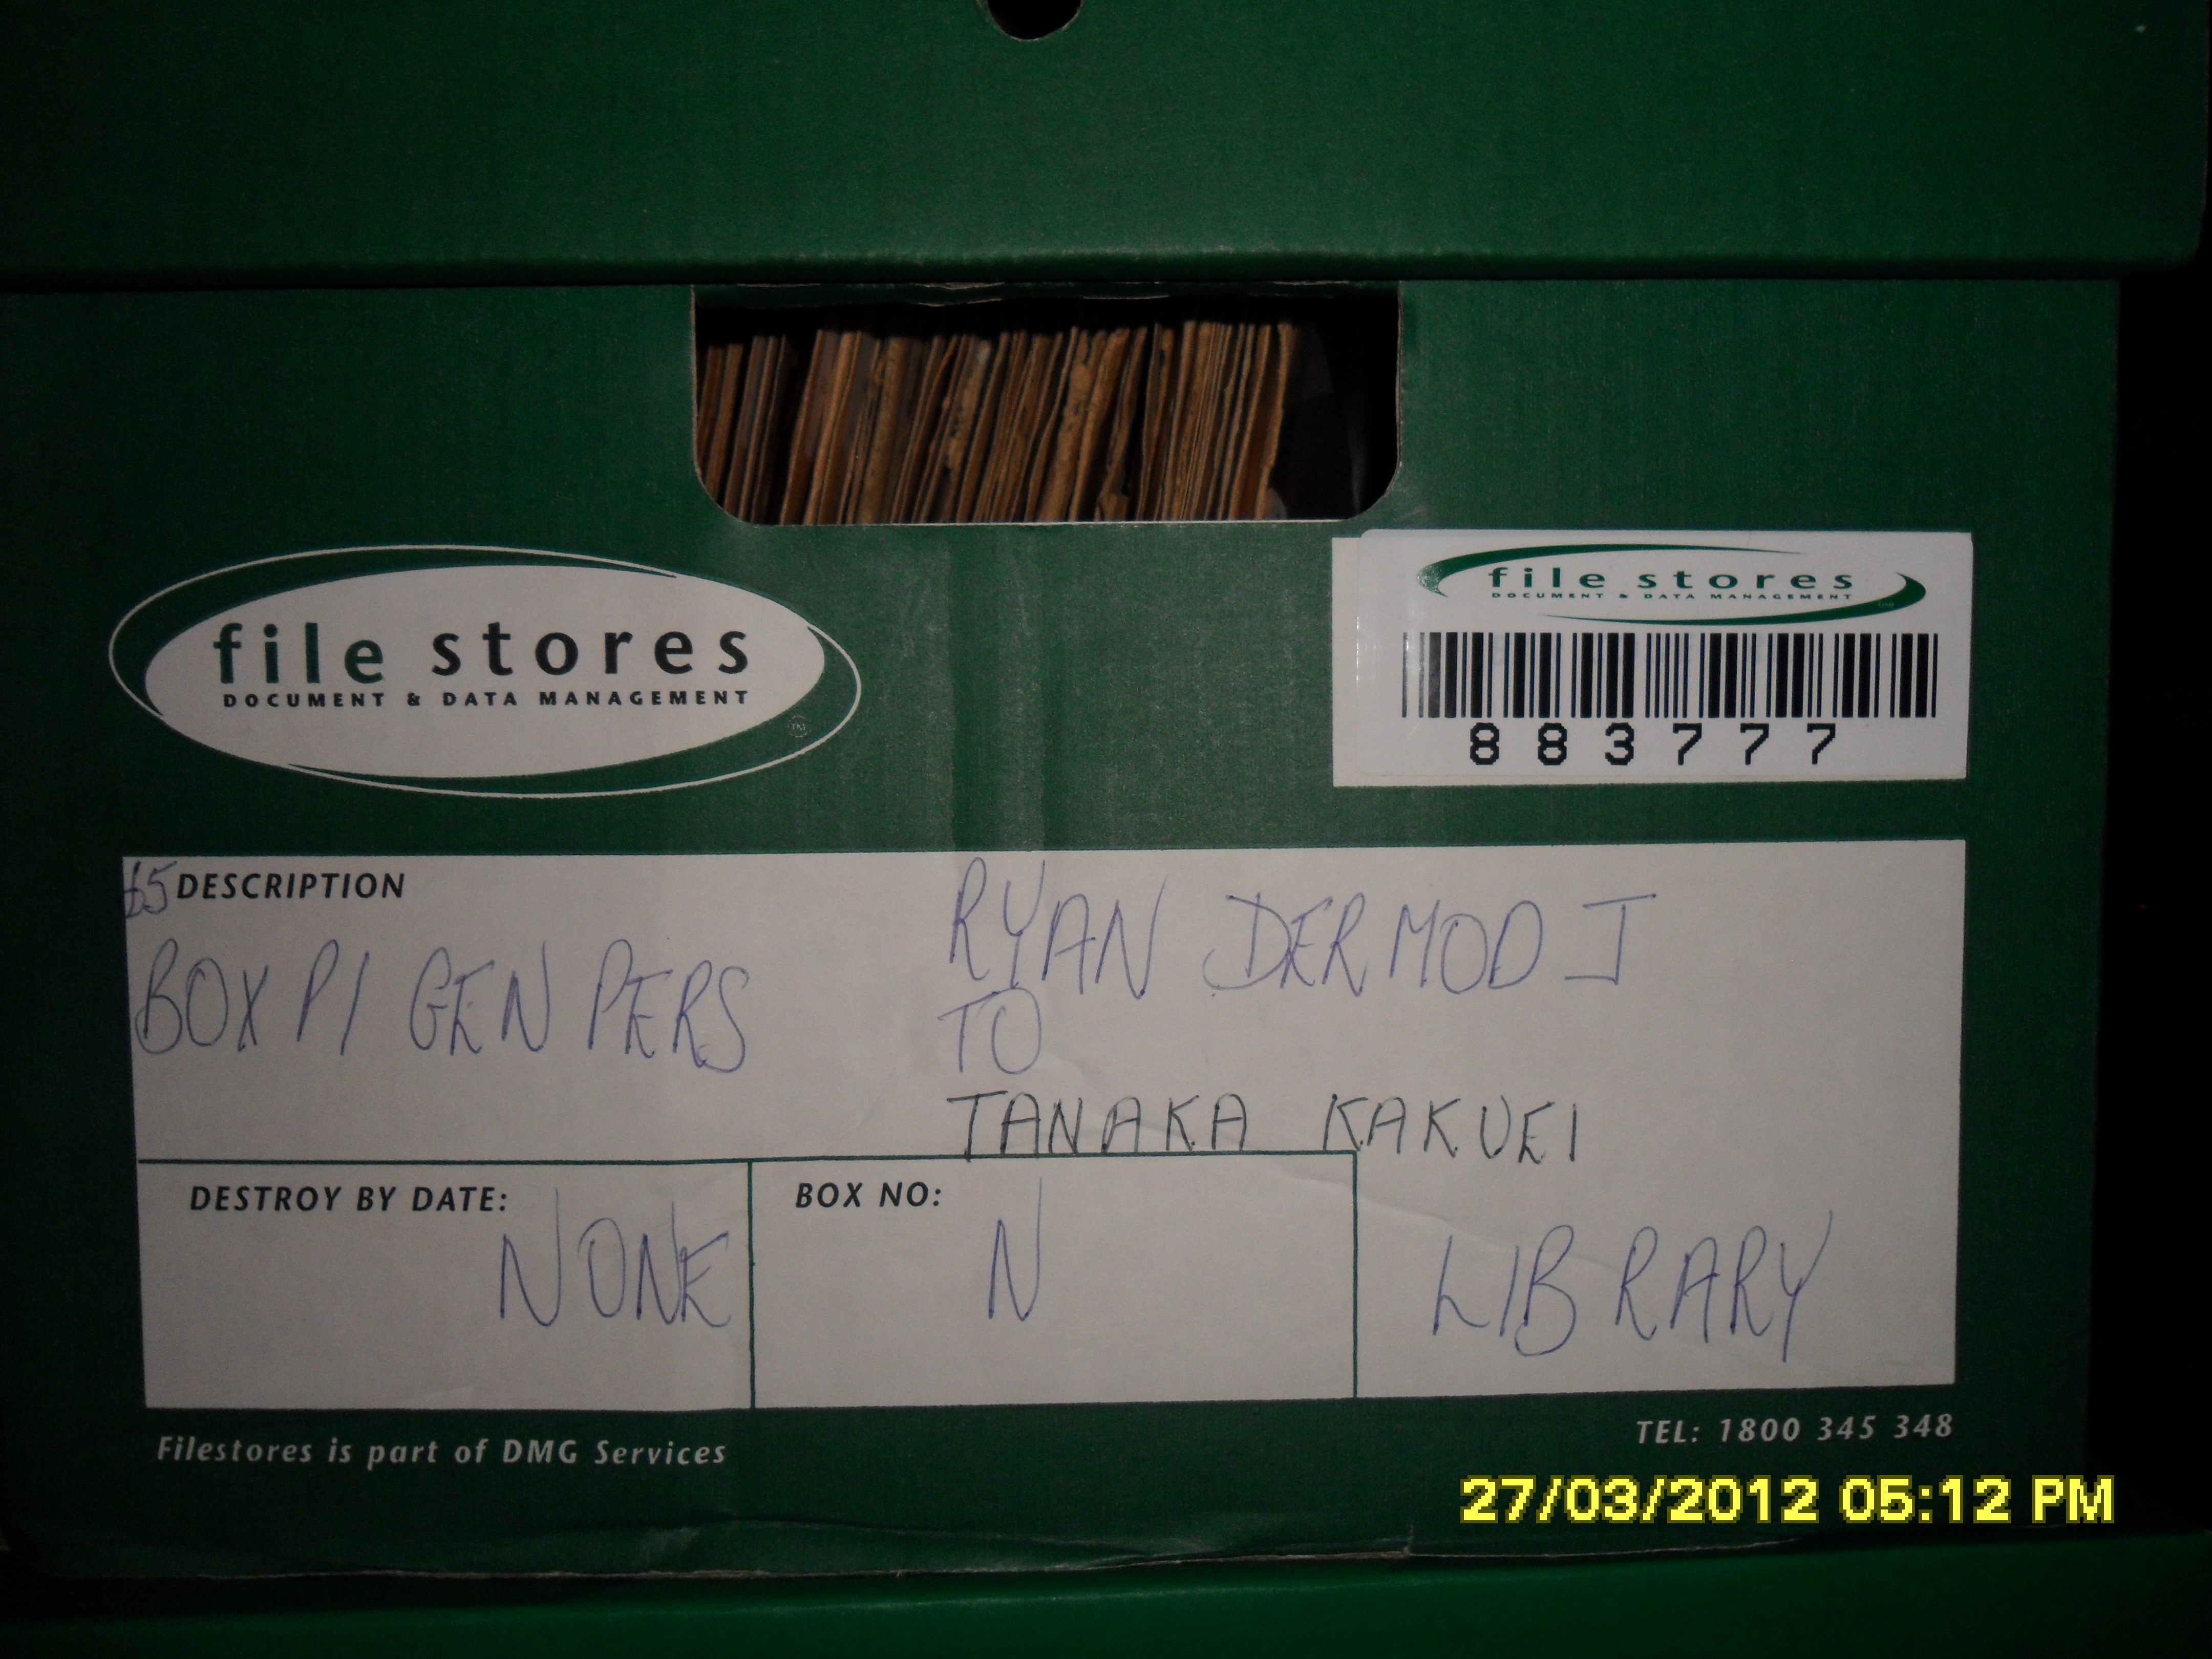 file stores
DOCUMENT & DATA MANAGEMENT
file stores
DOCUMENT & DATA MANAGEMENT
883777
DESCRIPTION
BOX P1 GEN PERS
RYAN DERMOD J
TO
TANAKA KAKUEI
DESTROY BY DATE:
NONE
BOX NO:
N
LIBRARY
Filestores is part of DMG Services
TEL: 1800 345 348
27/03/2012 05:12 PM